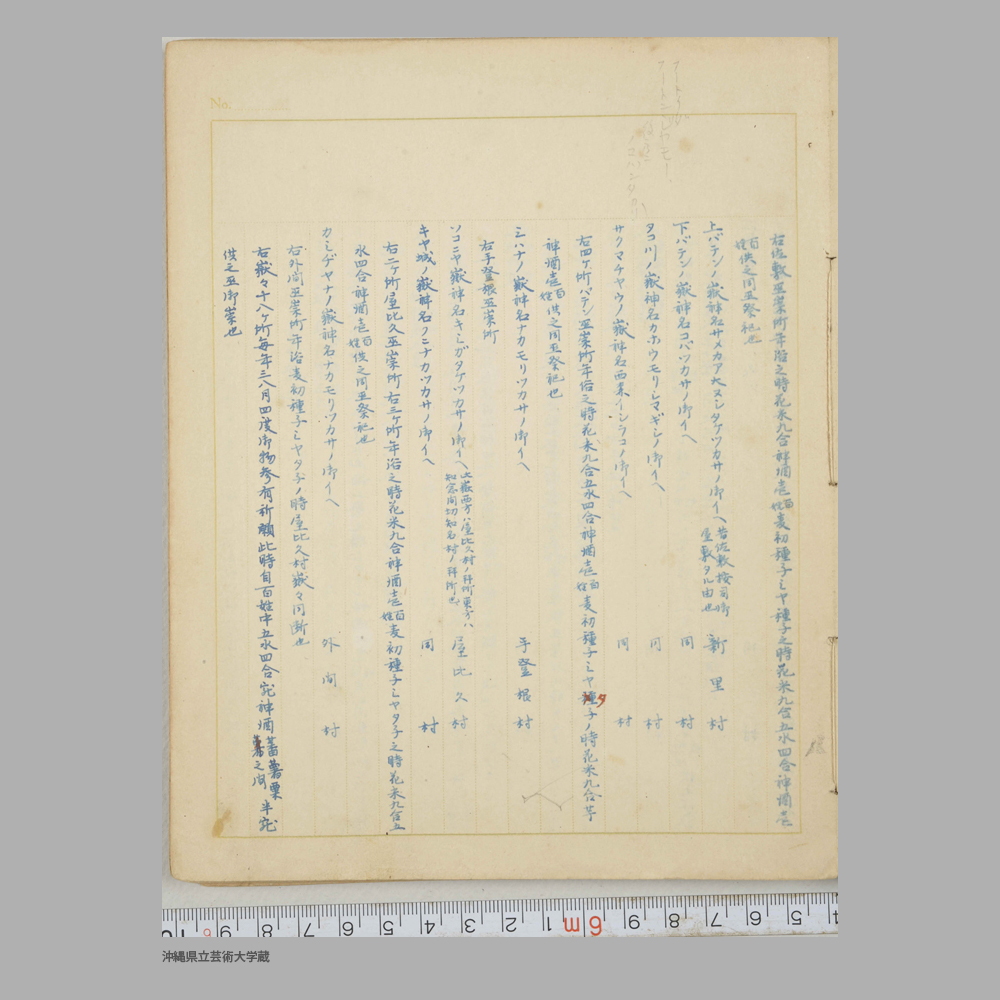 右佐敷巫崇所年浴之時花米九合神酒壱百姓麦初種子ミヤ種子之時花米九合五水四合神酒壱
百姓供之同巫祭祀也
上バテンノ嶽神名サメカア大ヌシタケツカサノ御イベ昔佐敷按司御屋敷タル由也 新里村
下バテンノ嶽神名コバツカサノ御イベ 同村
タコ川ノ嶽神名カホウモリシマギシノ御イベ 同村
サクマチヤウノ嶽神名西森イシラコノ御イベ 同村
右四ケ所バテン巫崇所年俗之時花米九合五水四合神酒壱百姓麦初種子ミヤ種タ子ノ時花米九合芋
神酒壱百姓供之同巫祭祀也
ミハナノ嶽神名ナカモリツカサノ御イベ 手登根村
右手登根巫崇所
ソコニヤ嶽神名キミガタケツカサノ御イベ此嶽西方ハ屋比久村ノ拝所東方ハ知念間切知名村ノ拝所也 屋比久村
キヤ城ノ嶽神名クニナカツカサノ御イベ 同村
右二ケ所屋比久巫崇所右三ケ所年浴之時花米九合神酒壱百姓麦初種子ミヤタ子之時花米九合五
水四合神酒壱百姓供之同巫祭祀也
カミヂヤナノ嶽神名ナカモリツカサノ御イベ 外間村
右外間巫崇所年浴麦初種子ミヤタ子ノ時屋比久村嶽々同断也
右嶽々十八ケ所毎年三八月四度御物参有祈願此時自百姓中五水四合宛神酒蕃薯粟半宛
薯之間
供之巫御崇也
No.
沖縄県立芸術大学蔵